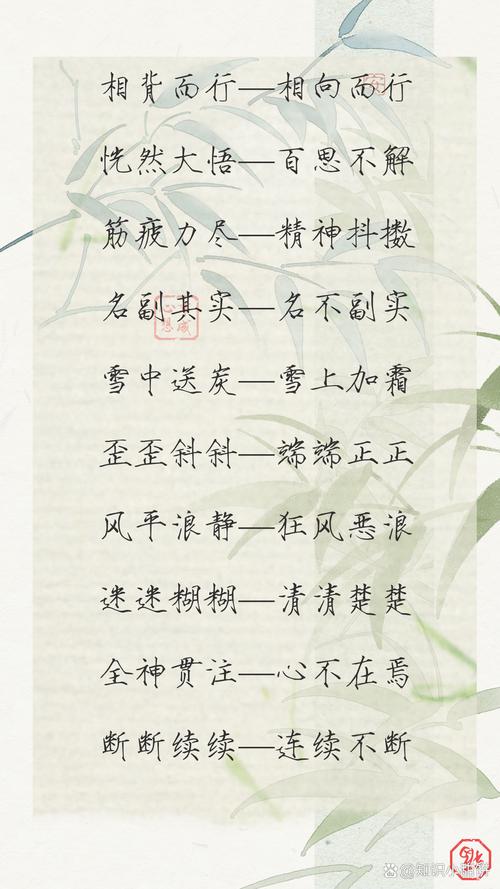 相背而行—相向而行
恍然大悟—百思不解
筋疲力尽—精神抖擞
名副其实—名不副实
雪中送炭—雪上加霜
歪歪斜斜—端端正正
风平浪静—狂风恶浪
迷迷糊糊—清清楚楚
全神贯注—心不在焉
断断续续—连续不断